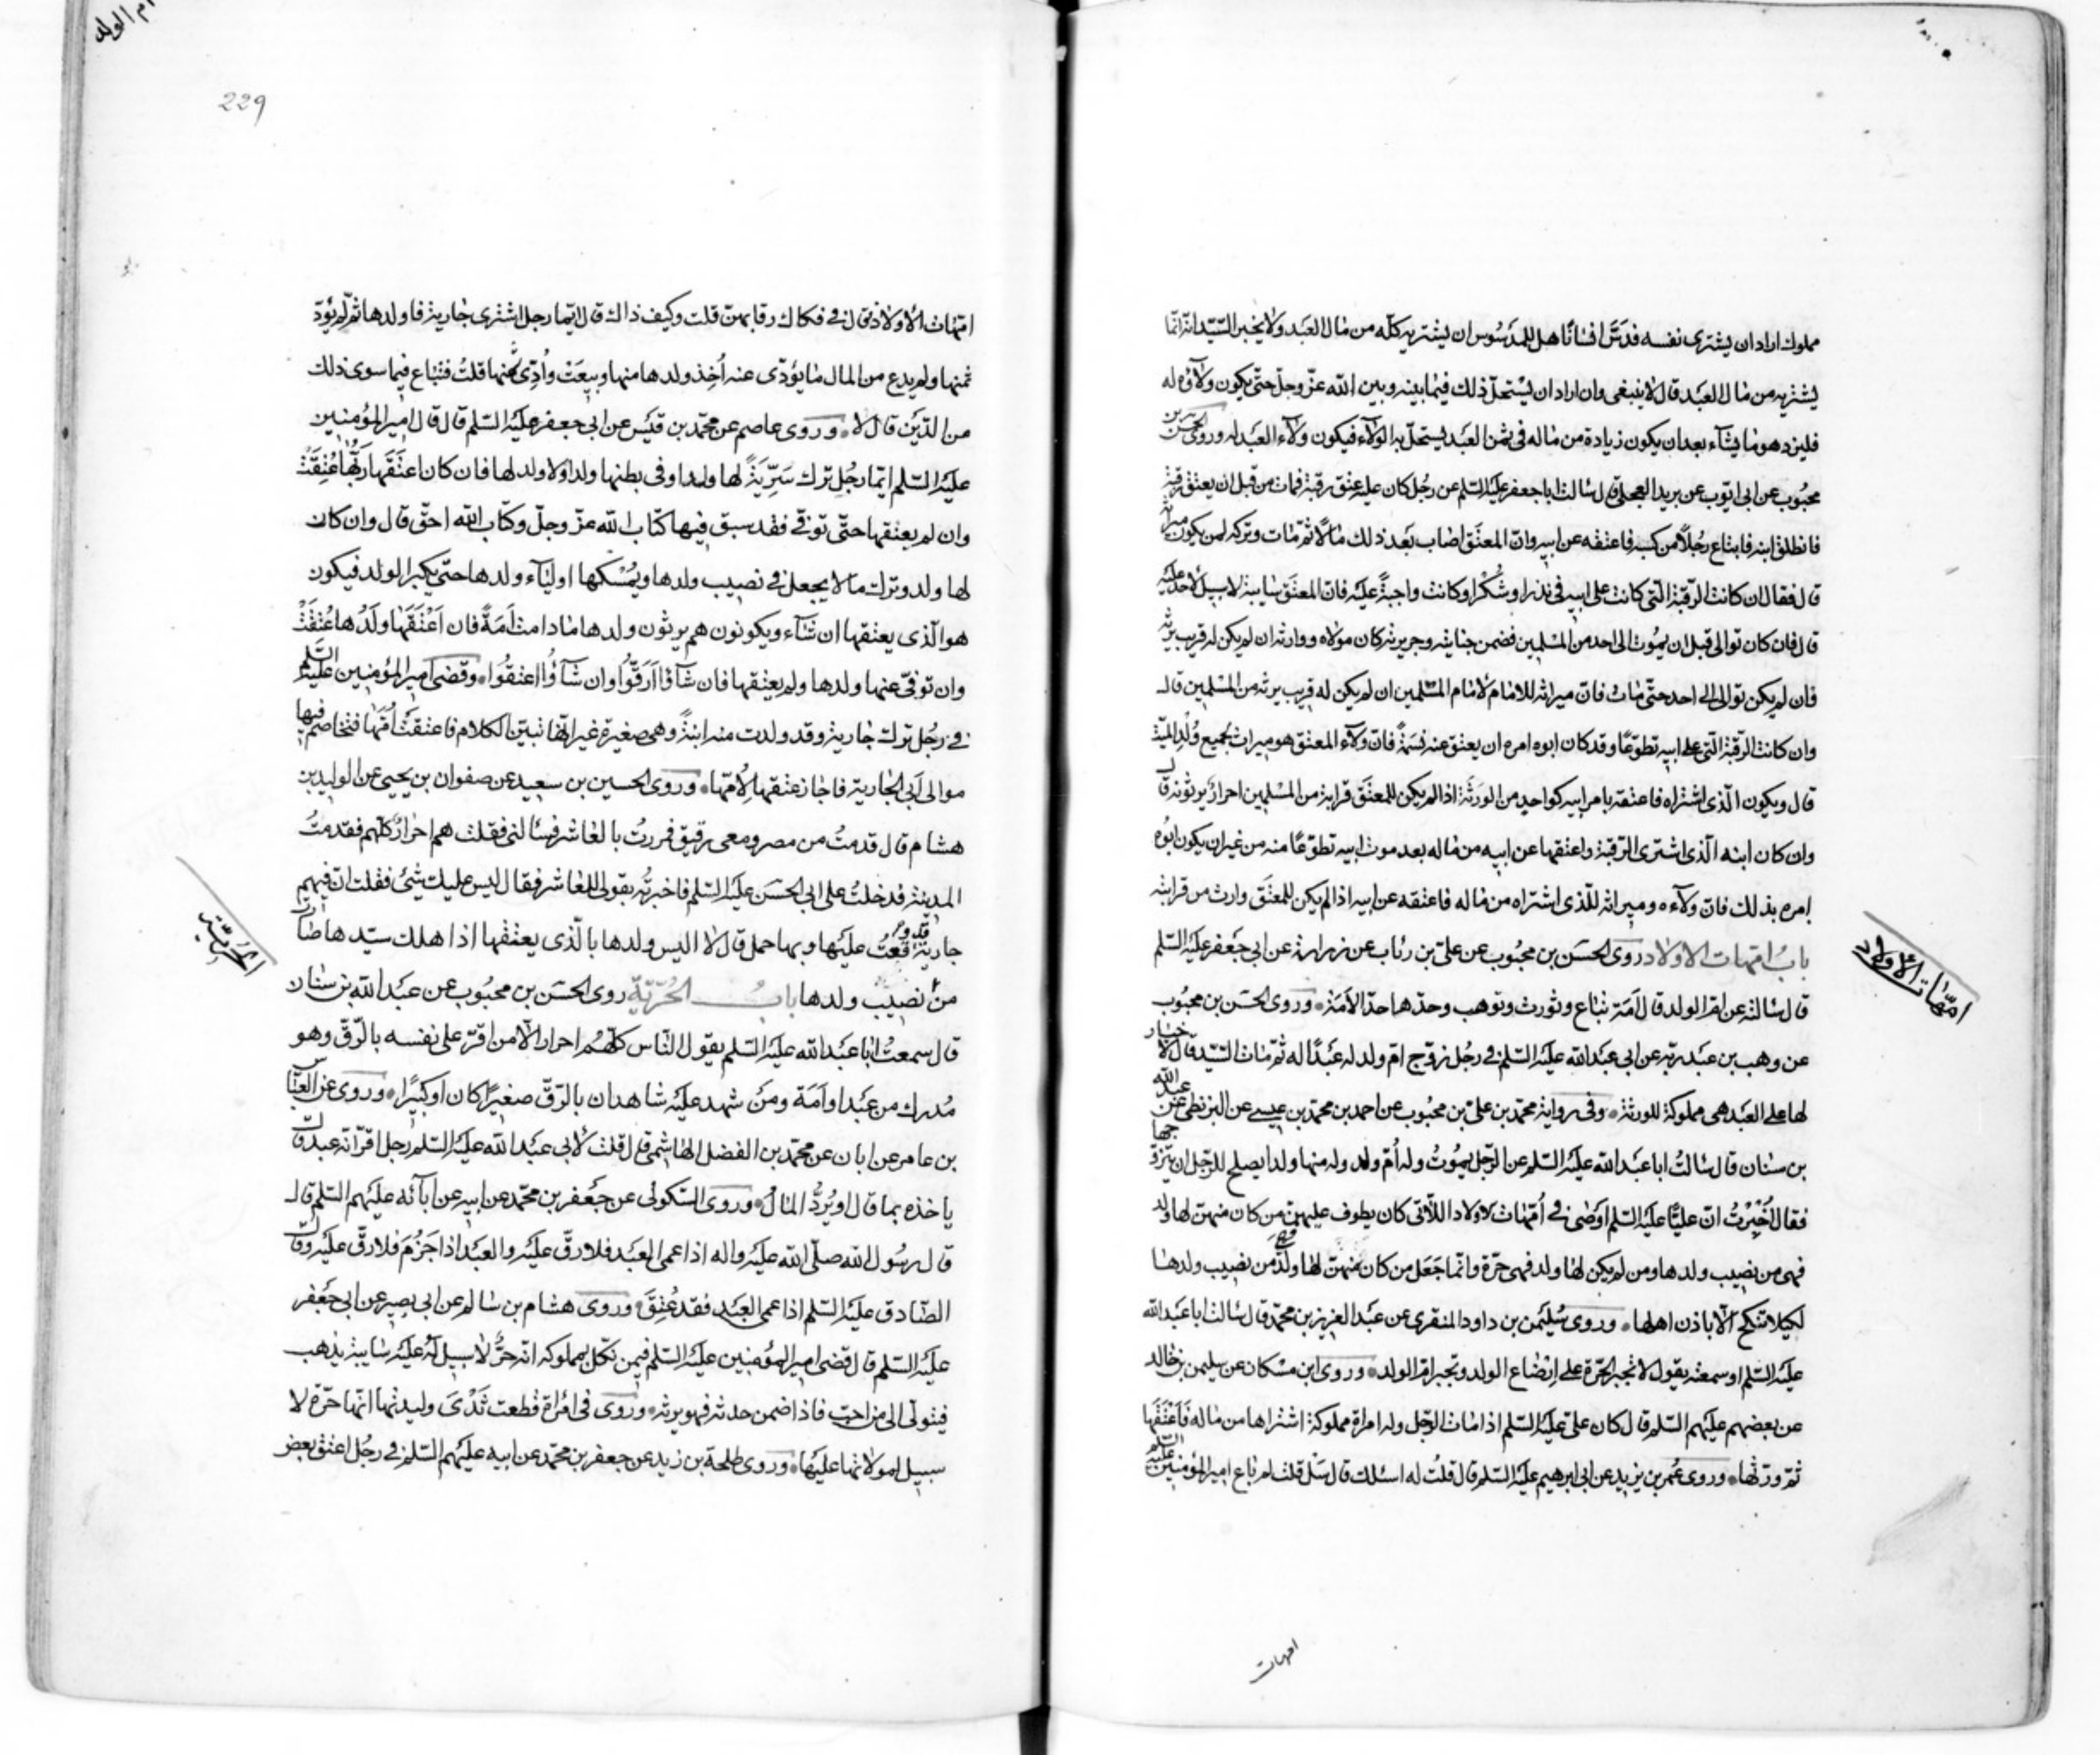 مملوك اراد ان يشترى نفسه فدسّ انسانا هل للمدسوس ان يشتريه كلّه من مال العبد ولا يخبر السّيّد انّه انّما
يشتريه من مال العبد قال لا ينبغى وان اراد ان يستحلّ ذلك فيما بينه وبين الله عزّ وجلّ حتّى يكون ولآؤه له
فليزد هو ما يشآء بعد ان يكون زيادة من ماله فى ثمن العبد يستحلّ به الولآء فيكون ولآء العبد له وروى الحسن بن
محبُوب عن ابى ايّوب عن بريد العجلى قال سالت ابا جعفر عليه السّلم عن رجُل كان عليه عتق رقبة فمات من قبل ان يعتق رقبة
فانطلق ابنه فابتاع رجُلاً من كسبه فاعتقه عن ابيه وانّ المعتَق اصاب بَعد ذلك مالًا ثمّ مات وتركه لمن يكون ميراثه
قال فقال ان كانت الرّقبة الّتى كانت على ابيه فى نذر او شُكر او كانت واجبةً عليه فانّ المعتَق سايبة لا سبيل لاحد عليه
قال فان كان توالى قبل ان يموُت الى احد من المسْلمين فضمن جنايته وجريرته كان مولاه ووارثه ان لم يكن له قريب يرثه
فان لم يكن توالى الى احد حتّى مات فانّ ميراثه للامام لامام المسْلمين ان لم يكن له قريب يرثه من المسْلمين قال
وان كانت الرّقبة الّتى على ابيه تطوّعًا وقد كان ابوه امره ان يعتق عنه نسَمةً فانّ ولآء المعتق هو ميراث لجميع وُلْدِ الميّت
قال ويكون الّذى اشتراه فاعتقه بامر ابيه كواحدٍ من الورَثة اذا لم يكن للمعتَق قرابة من المسْلمين احرارٌ يرثونه قال
وان كان ابنه الّذى اشترى الرّقبة فاعتقها عن ابيه من ماله بعد موت ابيه تطوّعًا منه من غير ان يكون ابوُه
امره بذلك فانّ ولآءه وميراثه للّذى اشتراه من ماله فاعتقه عن ابيه اذا لم يكن للمعتَق وارث من قرابته
بابُ امّهات الاولاد روى الحسَن بن محبُوب عن علىّ بن رئاب عن زرارة عن ابى جَعفر عليه السّلم
قال سالته عن امّ الولد قال اَمَة تباع وتورث وتوهب وحدّها حدّ الاَمَة وروى الحسَن بن محبُوب
عن وهب بن عَبد ربّه عن ابى عبد الله عليه السّلم فى رجُل زوّج امّ ولد له عَبدًا له ثمّ مات السّيّد قال لا خيار
لها على العَبد هى مملوكة للورثة وفى رواية محمّد بن علىّ بن محبُوب عن احمد بن محمّد بن عيسى عن البزنطى عن عبد الله
بن سنان قال سالتُ ابا عبد الله عليه السّلم عن الرّجل يموُت وله اُمّ ولد وله منها ولد ايصلح للرّجل ان يتزوّجها
فقال اُخْبِرْتُ انّ عليًّا عليه السّلم اوصى فى اُمّهات الاولاد اللّاتى كان يطوف عليهنّ من كان منهنّ لها ولد
فهى من نصيب ولدها ومن لم يكن لها ولد فهى حرّة وانّما جَعَل من كان منهنّ لها ولدٌ من نصيب ولدها
لكيلا تنكح الّا باذن اهلها وروى سُليمن بن داود المنقرى عن عبد العزيز بن محمّد قال سالت ابا عبد الله
عليه السّلم او سمعته يقول لا تجبر الحرّة على ارضاع الولد وتجبر امّ الولد وروى ابن مسْكان عن سليمن بن خالد
عن بعضهم عليهم السّلم قال كان علىّ عليه السّلم اذا مات الرّجل وله امراة مملوكة اشتراها من ماله فَاَعْتَقَها
ثمّ ورّثها وروى عُمر بن يزيد عن ابى ابرهيم عليه السّلم قال قلتُ له اسئلك قال سَل قلت لم باع امير المؤمنين عليه السّلم
امهات
امّهات الاولاد
ام الولد
229
امّهات الاولاد قال فى فكاك رقابهنّ قلت وكيف ذاك قال ايّما رجل اشترى جارية فاولدها ثمّ لم يؤدّ
ثمنها ولم يدع من المال ما يؤدّى عنه اُخِذ ولدها منها وبيعَت واُدّى ثمنها قلتُ فتباع فيما سوى ذلك
من الدّين قال لا وروى عاصم عن محمّد بن قيَس عن ابى جعفر عليه السّلم قال قال امير المؤمنين
عليه السّلم ايّما رجُل ترك سَرّيةً لها ولد او فى بطنها ولد او لا ولد لها فان كان اعتَقَها ربُّها عُتِقَتْ
وان لم يعتقها حتّى توفّى فقد سبق فيها كتاب الله عزّ وجلّ وكتاب الله احقّ قال وان كان
لها ولد وترك مالا يجعل فى نصيب ولدها ويُمسْكها اوليآء ولدها حتّى يكبر الولد فيكون
هو الّذى يعتقها ان شآء ويكونون هم يرثون ولدها ما دامت اَمَةً فان اَعْتَقَها ولَدُها عُتِقَتْ
وان توفّى عنها ولدها ولم يعتقها فان شآؤا اَرَقّوُا وان شآؤا اعتقوُا وقضى امير المؤمنين عليه السّلم
فى رجُل ترك جارية وقد ولدت منه ابنةً وهى صغيرة غير انّها تبين الكلام فاعتقَتْ اُمّها فتخاصم فيها
موالى اَبى الجارية فاجاز عتقها لِاُمّها وروى الحسين بن سعيد عن صفوان بن يحيى عن الوليد بن
هشام قال قدمتُ من مصر ومعى رقيق فمررتُ بالعاشر فسألنى فقلت هم احرارٌ كلّهم فقدمتُ
المدينة فدخلتُ على ابى الحسَن عليه السّلم فاخبرتُه بقولى للعاشر فقال ليس عليك شئ فقلت انّ فيهم
جارية قد وقعتُ عليها وبها حمل قال لا اليس ولدها بالّذى يعتقها اذا هلك سيّدها صارت
من نصيب ولدها بابُ الحُرّيّة روى الحسَن بن محبُوب عن عبد الله بن سنان
قال سمعتُ ابا عبد الله عليه السّلم يقول النّاس كلّهُم احرار الّا من اقرّ على نفسه بالرّقّ وهو
مُدرك من عَبد او اَمَة ومنَ شهد عليه شاهدان بالرّقّ صغيرًا كان او كبيرًا وروى عن العبّاس
بن عامر عن ابان عن محمّد بن الفضل الهاشمى قال قلت لابى عبد الله عليه السّلم رجل اقرّ انّه عبد قال
ياخذه بما قال او يُردُّ المال وروى السّكونى عن جَعفر بن محمّد عن ابيه عن آبائه عليهم السّلم قال
قال رسُول الله صلّى الله عليه واله اذا عمى العبَد فلا رقّ عليه والعبَد اذا جَزُمَ فلا رقّ عليه وقال
الصّادق عليه السّلم اذا عمى العبَد فقد عُتِقَ وروى هشام بن سالم عن ابى بصير عن ابى جَعفر
عليه السّلم قال قضى امير المؤمنين عليه السّلم فيمن نكّل بمملوكه انّه حرٌّ لا سبيل لَهُ عليه سايبة يذهب
فيتولّى الى من احبّ فاذا ضمن حدثه فهو يرثه وروى فى امْراة قطعت ثَدْىَ وليدتها انّها حرّة لا
سبيل لمولاتها عليها وروى طلحة بن زيد عن جعفر بن محمّد عن ابيه عليهم السّلم فى رجُل اعتق بعض
الحُرّيّة